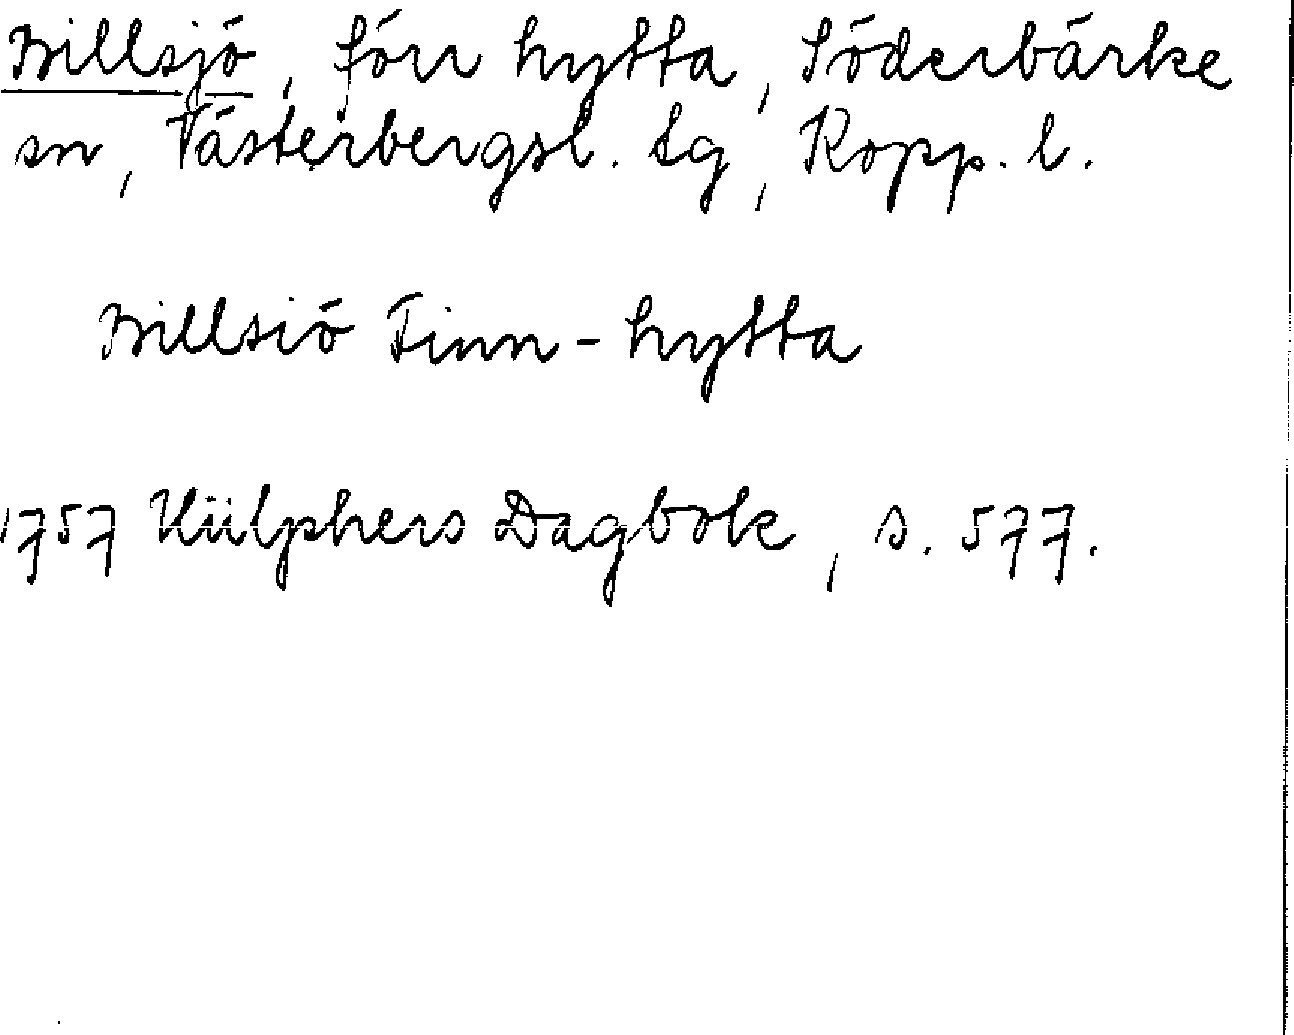 Billsjö, förr hytta, Söderbärke
sn, Västerbergsl. tg, Kopp. l.
Billsiö Finn-hytta
1757 Hülphers Dagbok, s. 577.